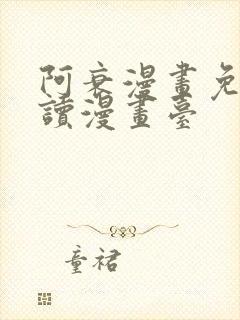 阿衰漫畫免
讀漫畫臺
童裙